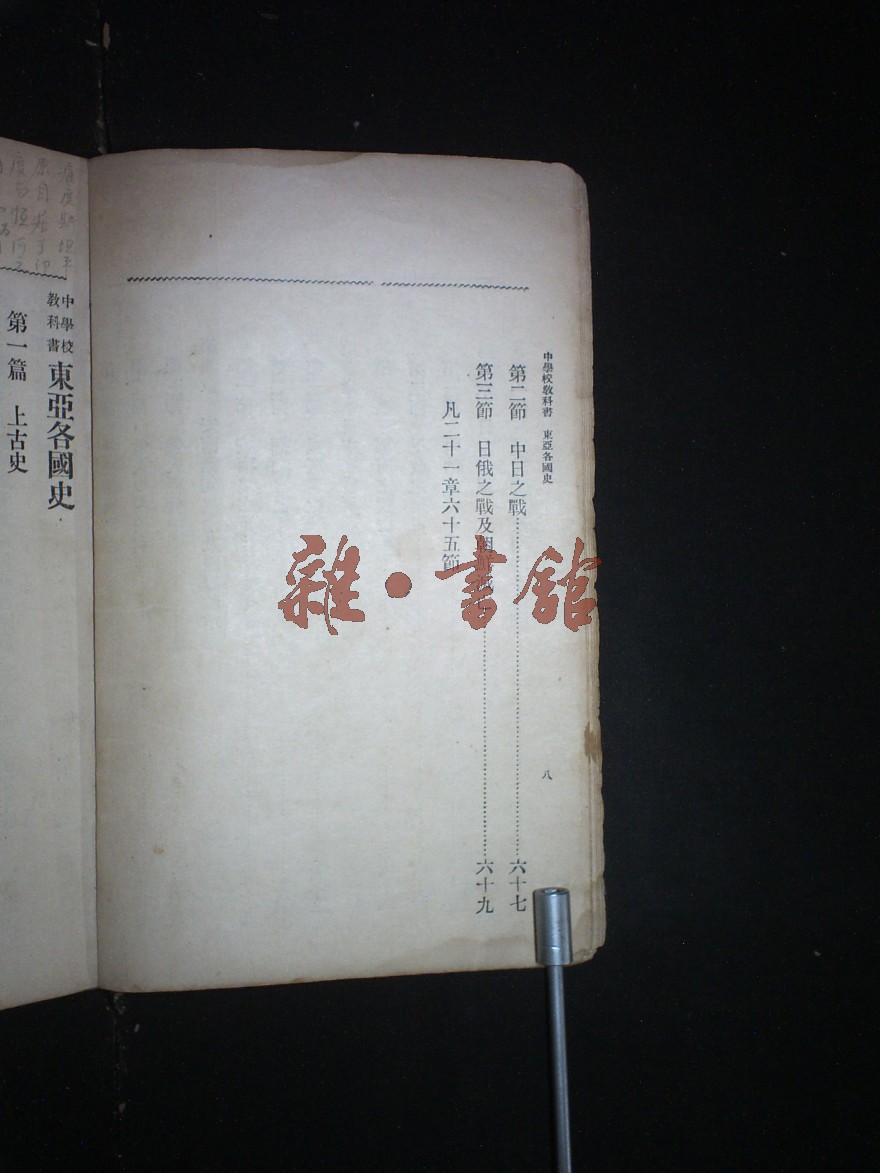 中學校教科書　東亞各國史
八
第二節　中日之戰……六十七
第三節　日俄之戰及朝鮮……六十九
凡二十一章六十五節
中學校
教科書
東亞各國史
第一篇　上古史
雜·書舘